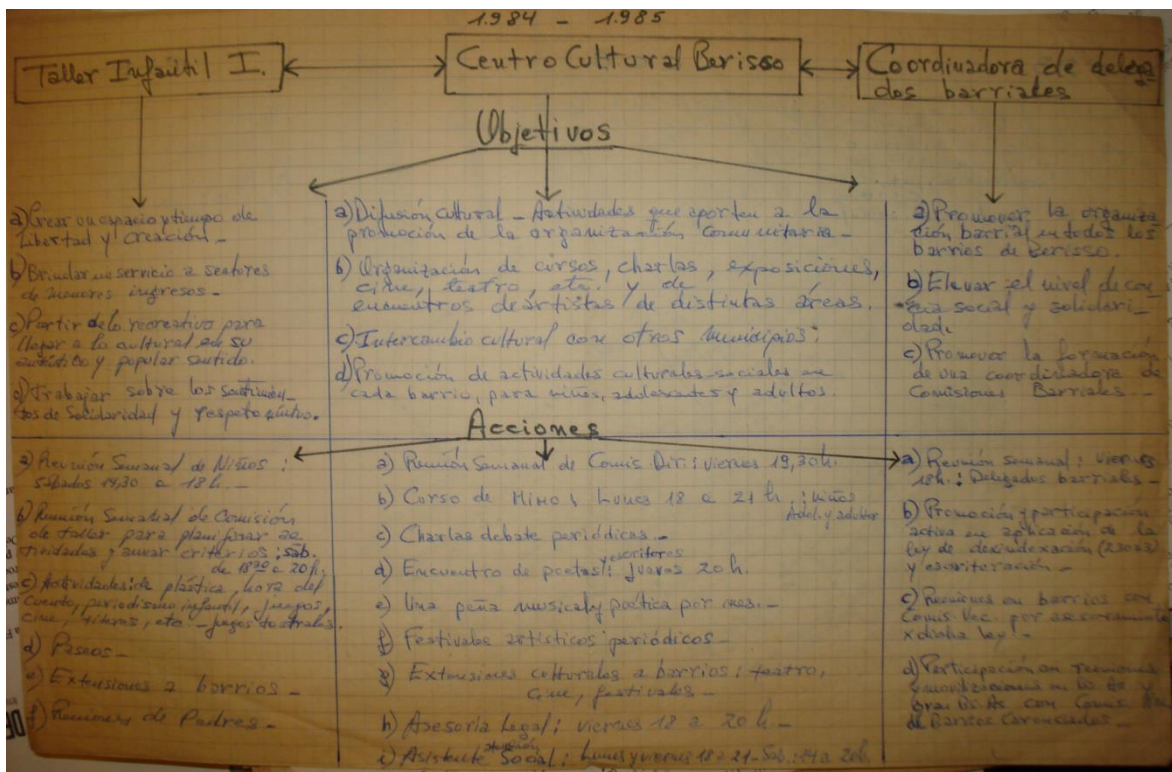 1.984 - 1.985
Taller Infantil I.
Centro Cultural Berisso
Coordinadora de delega
dos barriales
Objetivos
a) Crear un espacio y tiempo de
Libertad y Creación -
b) Brindar un servicio a sectores
de menores ingresos -
c) Partir de lo recreativo para
llegar a lo cultural en su
auténtico y popular sentido.
d) Trabajar sobre los sentimien_
tos de Solidaridad y respeto mutuo.
a) Difusión cultural - Actividades que aporten a la
promoción de la organización comunitaria -
b) Organización de cursos, charlas, exposiciones,
cine, teatro, etc. y de
encuentros de artistas de distintas áreas.
c) Intercambio cultural con otros municipios.
d) Promoción de actividades culturales-sociales en
cada barrio, para niños, adolescentes y adultos.
a) Promover la organiza
ción barrial en todos los
barrios de Berisso.
b) Elevar el nivel de con
cia social y solidari_
dad.
c) Promover la formación
de una coordinadora de
Comisiones Barriales -
Acciones
a) Reunión Semanal de Niños :
sábados 14,30 a 18 h. -
b) Reunión Semanal de Comisión
de taller para planificar ac
tividades y aunar criterios : sáb.
de 18³⁰ a 20 h.
c) Actividades: de plástica, hora del
cuento, periodismo infantil, juegos,
cine, títeres, etc - juegos teatrales.
d) Paseos -
e) Extensiones a barrios -
f) Reuniones de Padres -
a) Reunión Semanal de Comis. Dir.: viernes 19,30 h.
b) Curso de Mimo : Lunes 18 a 21 h. : niños
Adol. y adultos
c) Charlas debate periódicas. -
y escritores
d) Encuentro de poetas : jueves 20 h.
e) Una peña musical y poética por mes. -
f) Festivales artísticos periódicos -
g) Extensiones culturales a barrios : teatro,
cine, festivales -
h) Asesoría Legal : viernes 18 a 20 h -
i) Asistente Social : Lunes y viernes 18 a 21 - Sáb.: 14 a 20 h.
a) Reunión semanal : viernes
18 h. : Delegados barriales -
b) Promoción y participación
activa en aplicación de la
ley de desindexación
y escrituración -
c) Reuniones en barrios con
Comis. Vec. por asesoramiento
x dicha ley -
d) Participación en reuniones
y movilizaciones en Bs As y
Gran Bs. As con Comis.
de Barrios Carenciados -